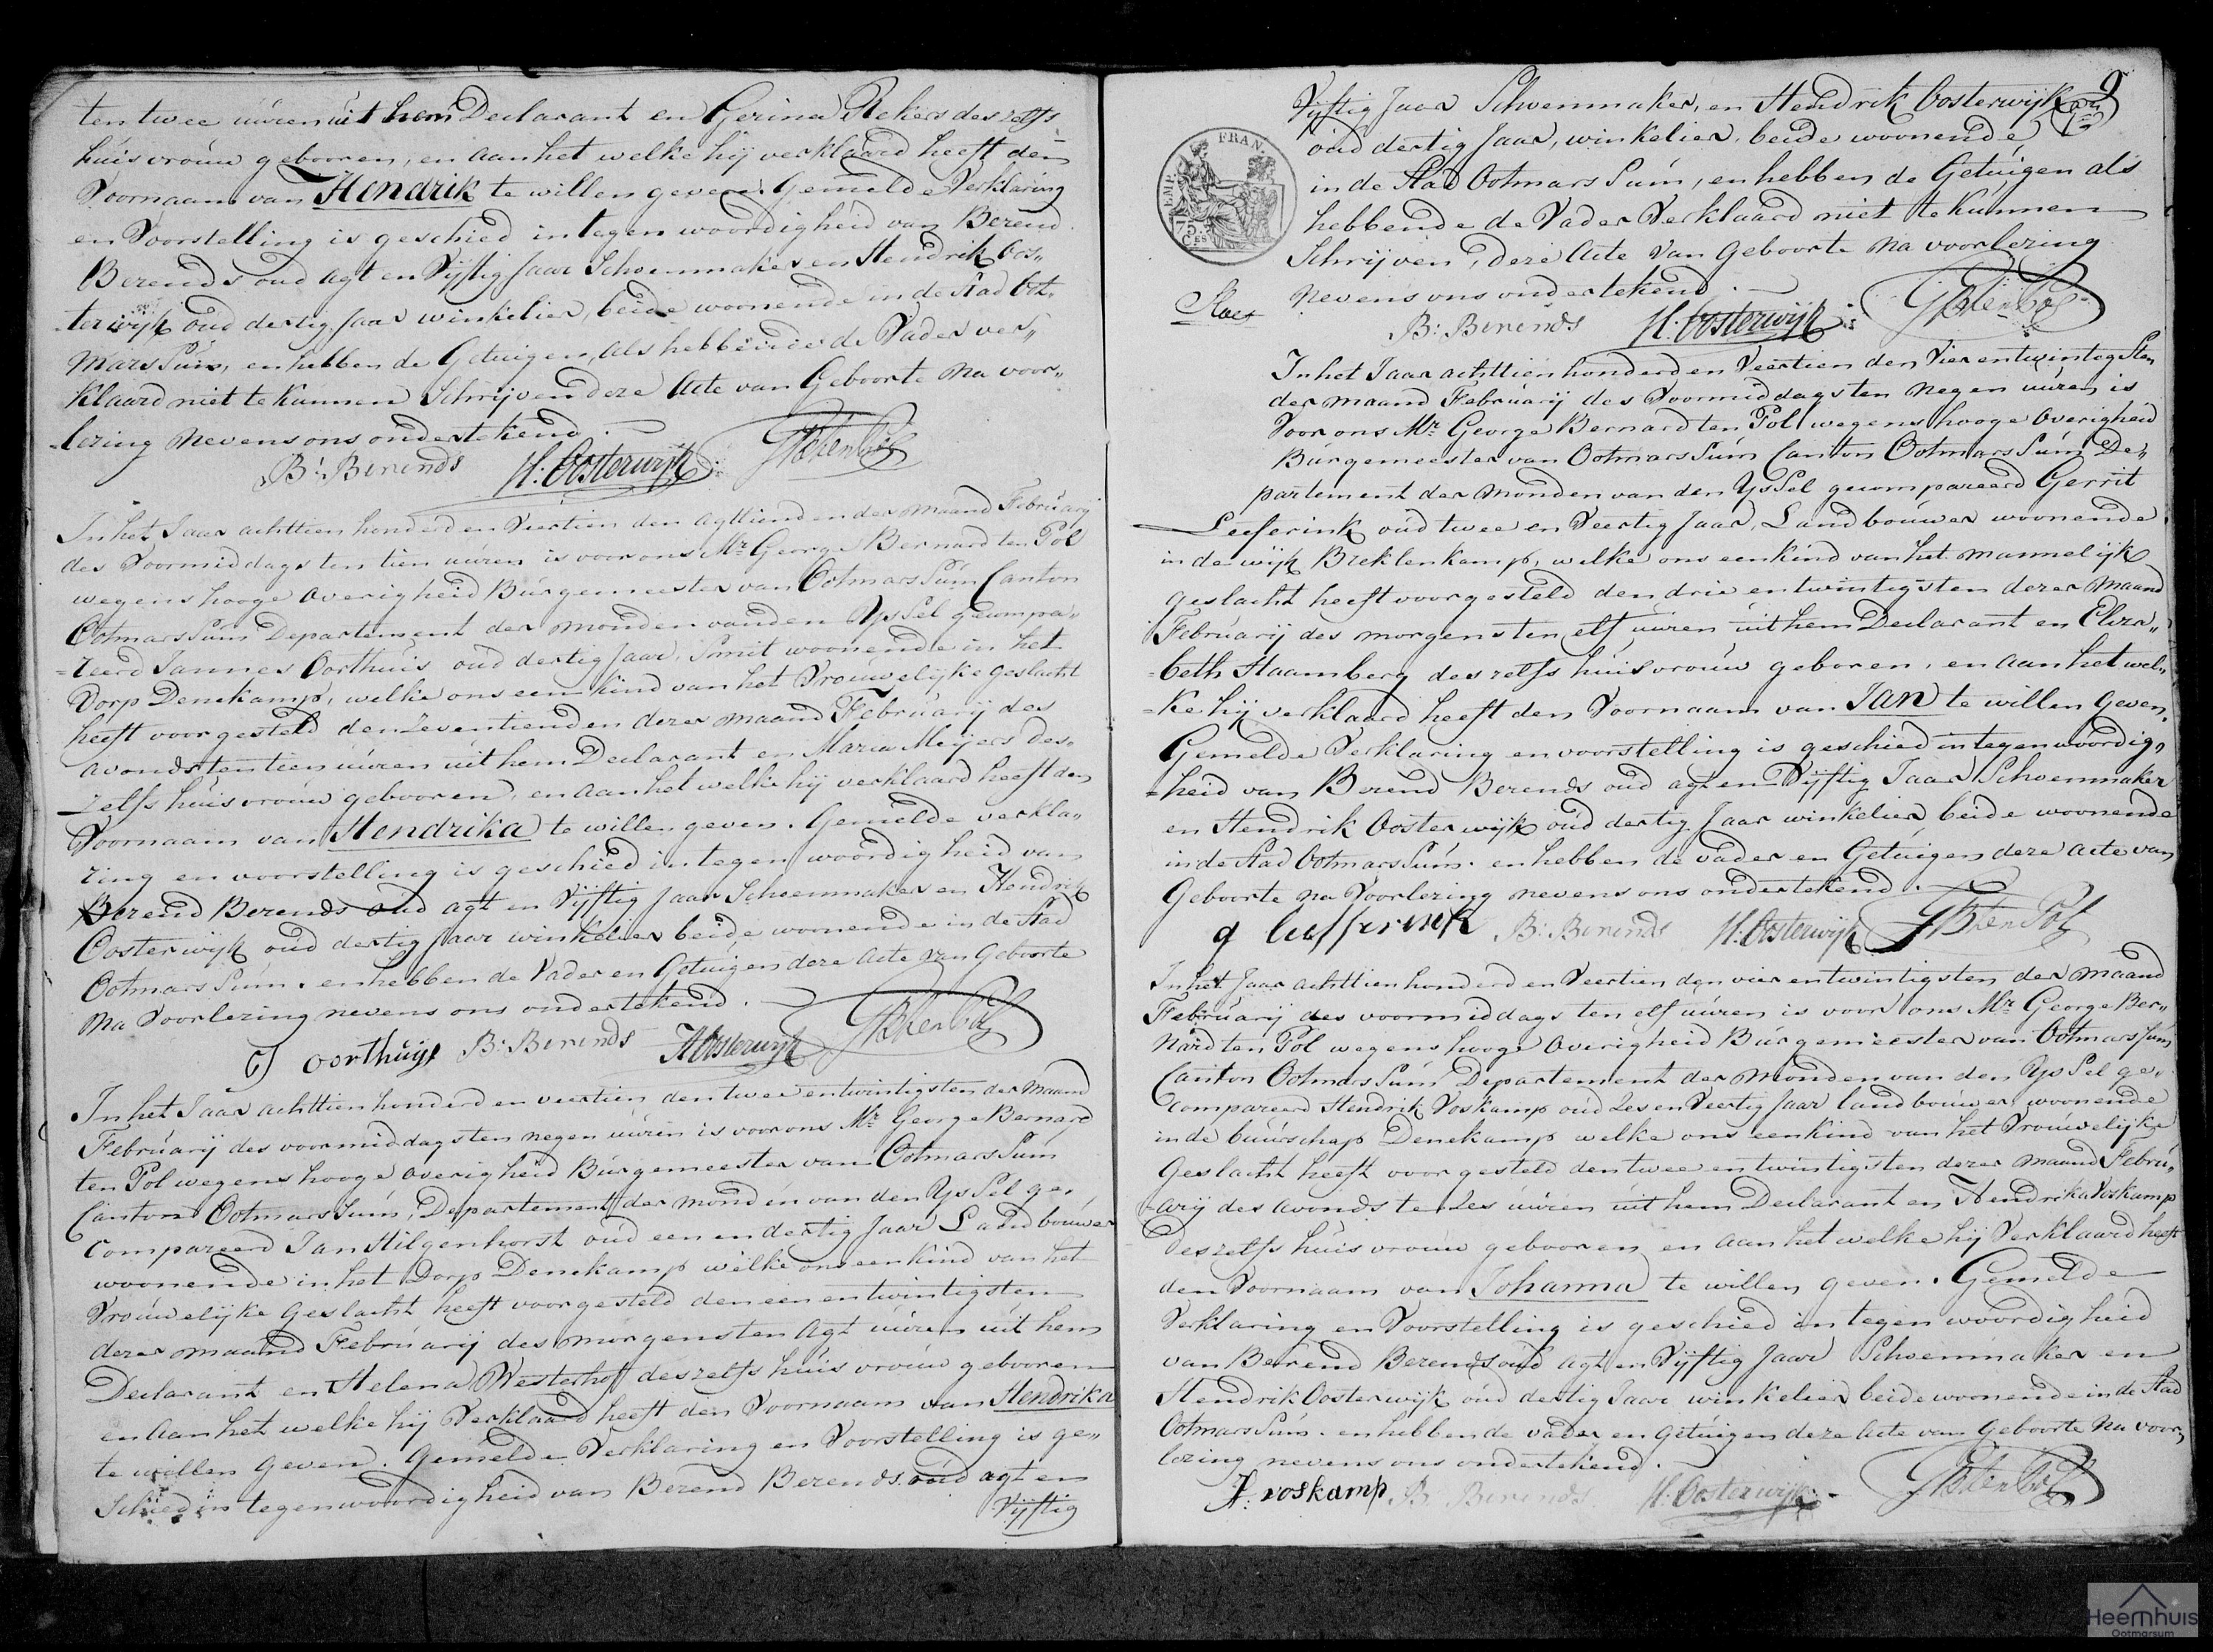 ten twee uúren uit hem Declarant en Gerina Rekers des zelfs
húisvroúw gebooren, en aan het welke hij verklaard heeft den
Voornaam van Hendrik te willen geven. Gemelde Verklaring
en Voorstelling is geschied in tegenwoordigheid van Berend
Berends oud agt en Vijftig Jaar Schoenmaker en Hendrik Oos„
terwijk oud dertig Jaar winkelier, beide woonende in de Stad Oot„
marssum, en hebben de Getuigen, als hebbende de Vader ver„
klaard niet te kunnen Schrijven deze Acte van Geboorte na voor„
lezing nevens ons ondertekend.
B: Berends H: Oosterwijk GB ten Pol
In het Jaar achttien honderd en Veertien den agttienden der maand Februarij
des Voormiddags ten tien uúren is voor ons Mr George Bernard ten Pol
wegens hooge Overigheid Búrgemeester van Ootmarssúm Canton
Ootmarssum Departement der monden van den Yssel gecompa„
reerd Jannes Oorthúis oúd dertig Jaar, Smit woonende in het
Dorp Denekamp, welke ons een kind van het Vroúwelijke geslacht
heeft voorgesteld den Zeventienden dezer maand Februarij des
avonds ten tien uúren uit hem Declarant en Maria Meijers des„
zelfs húisvroúw gebooren, en aan het welke hij verklaard heeft den
Voornaam van Hendrika te willen geven. Gemelde verkla„
ring en voorstelling is geschied in tegenwoordigheid van
Berend Berends oud agt en Vijftig Jaar Schoenmaker en Hendrik
Oosterwijk oúd dertig Jaar winkelier beide woonende in de Stad
Ootmarssum. en hebben de Vader en Getuigen deze Acte van Geboorte
na Voorlezing nevens ons ondertekend.
oorthuys B: Berends H Oosterwijk GB ten Pol
In het Jaar achttien honderd en veertien den twee en twintigsten der maand
Februarij des voormiddags ten negen uúren is voor ons Mr George Bernard
ten Pol wegens hooge overigheid Búrgemeester van Ootmarssúm
Canton Ootmarssúm, Departement der monden van den Yssel ge„
compareerd Jan Hilgenhorst oúd een en dertig Jaar Landboúwer
woonende in het Dorp Denekamp welke ons een kind van het
Vroúwelijke geslacht, heeft voorgesteld den een en twintigsten
dezer maand Februarij des morgens ten Agt uúren uit hem
Declarant en Helena Westerhof deszelfs húisvroúw gebooren
en aan het welke hij Verklaard heeft den Voornaam van Hendrika
te willen geven. Gemelde Verklaring en Voorstelling is ge„
schied in tegenwoordigheid van Berend Berends oúd agt en
Vijftig
9
Vijftig Jaar Schoenmaker, en Hendrik Oosterwijk
oúd dertig Jaar, winkelier, beide woonende
in de Stad Ootmarssúm, en hebben de Getúigen als
hebbende de Vader Verklaard niet te kúnnen
Schrijven, deze Acte van Geboorte na voorlezing
nevens ons ondertekend.
EMP. FRAN.
75.
Ces
B: Berends H: Oosterwijk GB ten Pol
In het Jaar achttien honderd en Veertien den Vier en twintigsten
der maand Februarij des Voormiddags ten negen uúren is
Voor ons Mr George Bernard ten Pol wegens hooge Overigheid
Burgemeester van Ootmarssúm Canton Ootmarssúm De„
partement der monden van den Yssel gecompareerd Gerrit
Leeferink oúd twee en Veertig Jaar, Landboúwer woonende
in de wijk Breklenkamp, welke ons een kind van het mannelijk
geslacht heeft voorgesteld den drie en twintigsten dezer maand
Februarij des morgens ten elf uúren uit hem Declarant en Eliza„
beth Haamberg deszelfs húisvroúw geboren, en aan het wel„
ke hij verklaard heeft den Voornaam van Jan te willen geven.
Gemelde Verklaring en voorstelling is geschied in tegenwoordig„
heid van Berend Berends oud agt en Vijftig Jaar Schoenmaker
en Hendrik Oosterwijk oúd dertig Jaar winkelier, beide woonende
in de Stad Ootmarssúm. en hebben de vader en Getuigen deze acte van
Geboorte na Voorlezing nevens ons ondertekend.
g leefferinck B: Berends H: Oosterwijk GB ten Pol
In het Jaar achttien honderd en Veertien den vier en twintigsten der maand
Februarij des voormiddags ten elf uúren is voor ons Mr George Ber„
nard ten Pol wegens hooge Overigheid Búrgemeester van Ootmarssúm
Canton Ootmarssúm Departement der monden van den Yssel ge„
compareerd Hendrik Voskamp oúd Zes en Veertig Jaar landbouwer woonende
in de búúrschap Denekamp welke ons een kind van het Vroúwelijke
Geslacht heeft voorgesteld den twee en twintigsten dezer maand Febrú„
arij des avonds te Zes uúren uit hem Declarant en Hendrika Voskamp
deszelfs húisvroúw gebooren en aan het welke hij Verklaard heeft
den Voornaam van Johanna te willen geven. Gemelde
Verklaring en Voorstelling is geschied in tegenwoordigheid
van Berend Berends oúd agt en Vijftig Jaar Schoenmaker en
Hendrik Oosterwijk oúd dertig Jaar winkelier beide woonende in de Stad
Ootmarssúm. en hebben de vader en getúigen deze Acte van Geboorte na voor„
lezing nevens ons ondertekend.
H: voskamp B Berends H: Oosterwijk GB ten Pol
Heemhuis
Ootmarsum